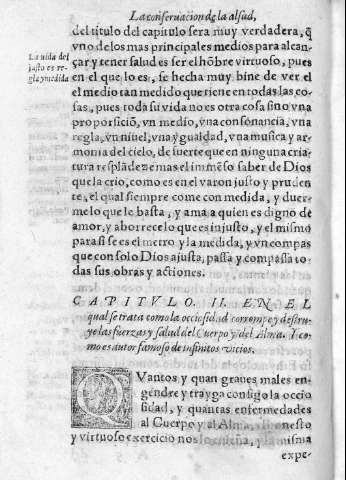 La conseruacion de la alsud,
del titulo del capitulo sera muy verdadera, q̃
vno de los mas principales medios para alcan-
çar y tener salud es ser el hõbre virtuoso, pues
en el que lo es, se hecha muy bine de ver el
el medio tan medido que tiene en todas las co-
sas, pues toda su vida no es otra cosa sino vna
proporsiciõ, vn medio, vna consonancia, vna
regla, vn niuel, vna ygualdad, vna musica y ar-
monia del cielo, de suerte que en ninguna cria-
tura resplãdeze mas el immẽso saber de Dios
que la crio, como es en el varon justo y pruden
te, el qual siempre come con medida, y duer-
me lo que le basta, y ama a quien es digno de
amor, y aborrece lo que es injusto, y el mismo
para si se es el metro y la medida, y vn compas
que con solo Dios ajusta, passa y compassa to-
das sus obras y actiones.
La uida del
justo es re-
gla y medida
CAPITVLO. II. EN EL
qual se trata como la occiosidad corrompe y destru-
ye las fuerzas y salud del Cuerpo y del Alma. Y co-
mo es autor famoso de infinitos vicios.
QVantos y quan graues males en-
gendre y trayga consigo la occio
sidad, y quantas enfermedades
al Cuerpo y al Alma, el honesto
y virtuoso exercicio nos lo enseña, y la misma
expe-